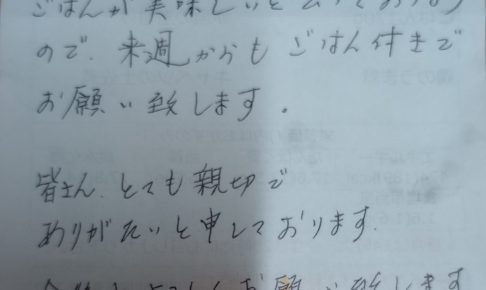 ごはんが美味しいと云っております
ので、来週からもごはん付きで
お願い致します。
皆さん、とても親切で
ありがたいと申しております。
お願い致します